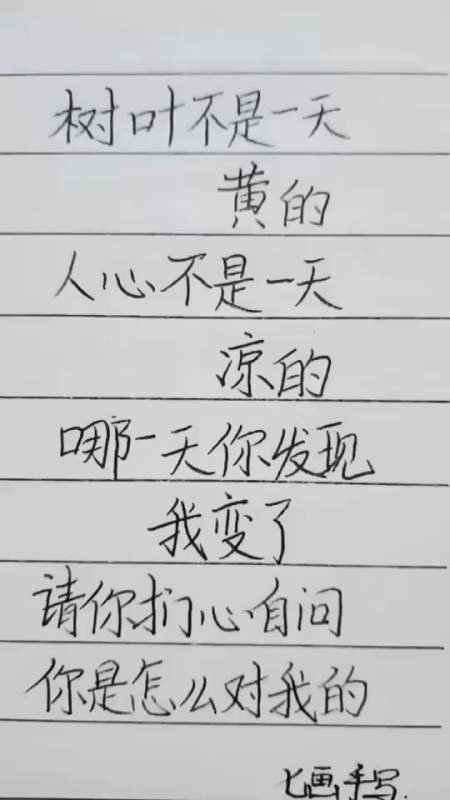 树叶不是一天
黄的
人心不是一天
凉的
哪一天你发现
我变了
请你扪心自问
你是怎么对我的
七画手写